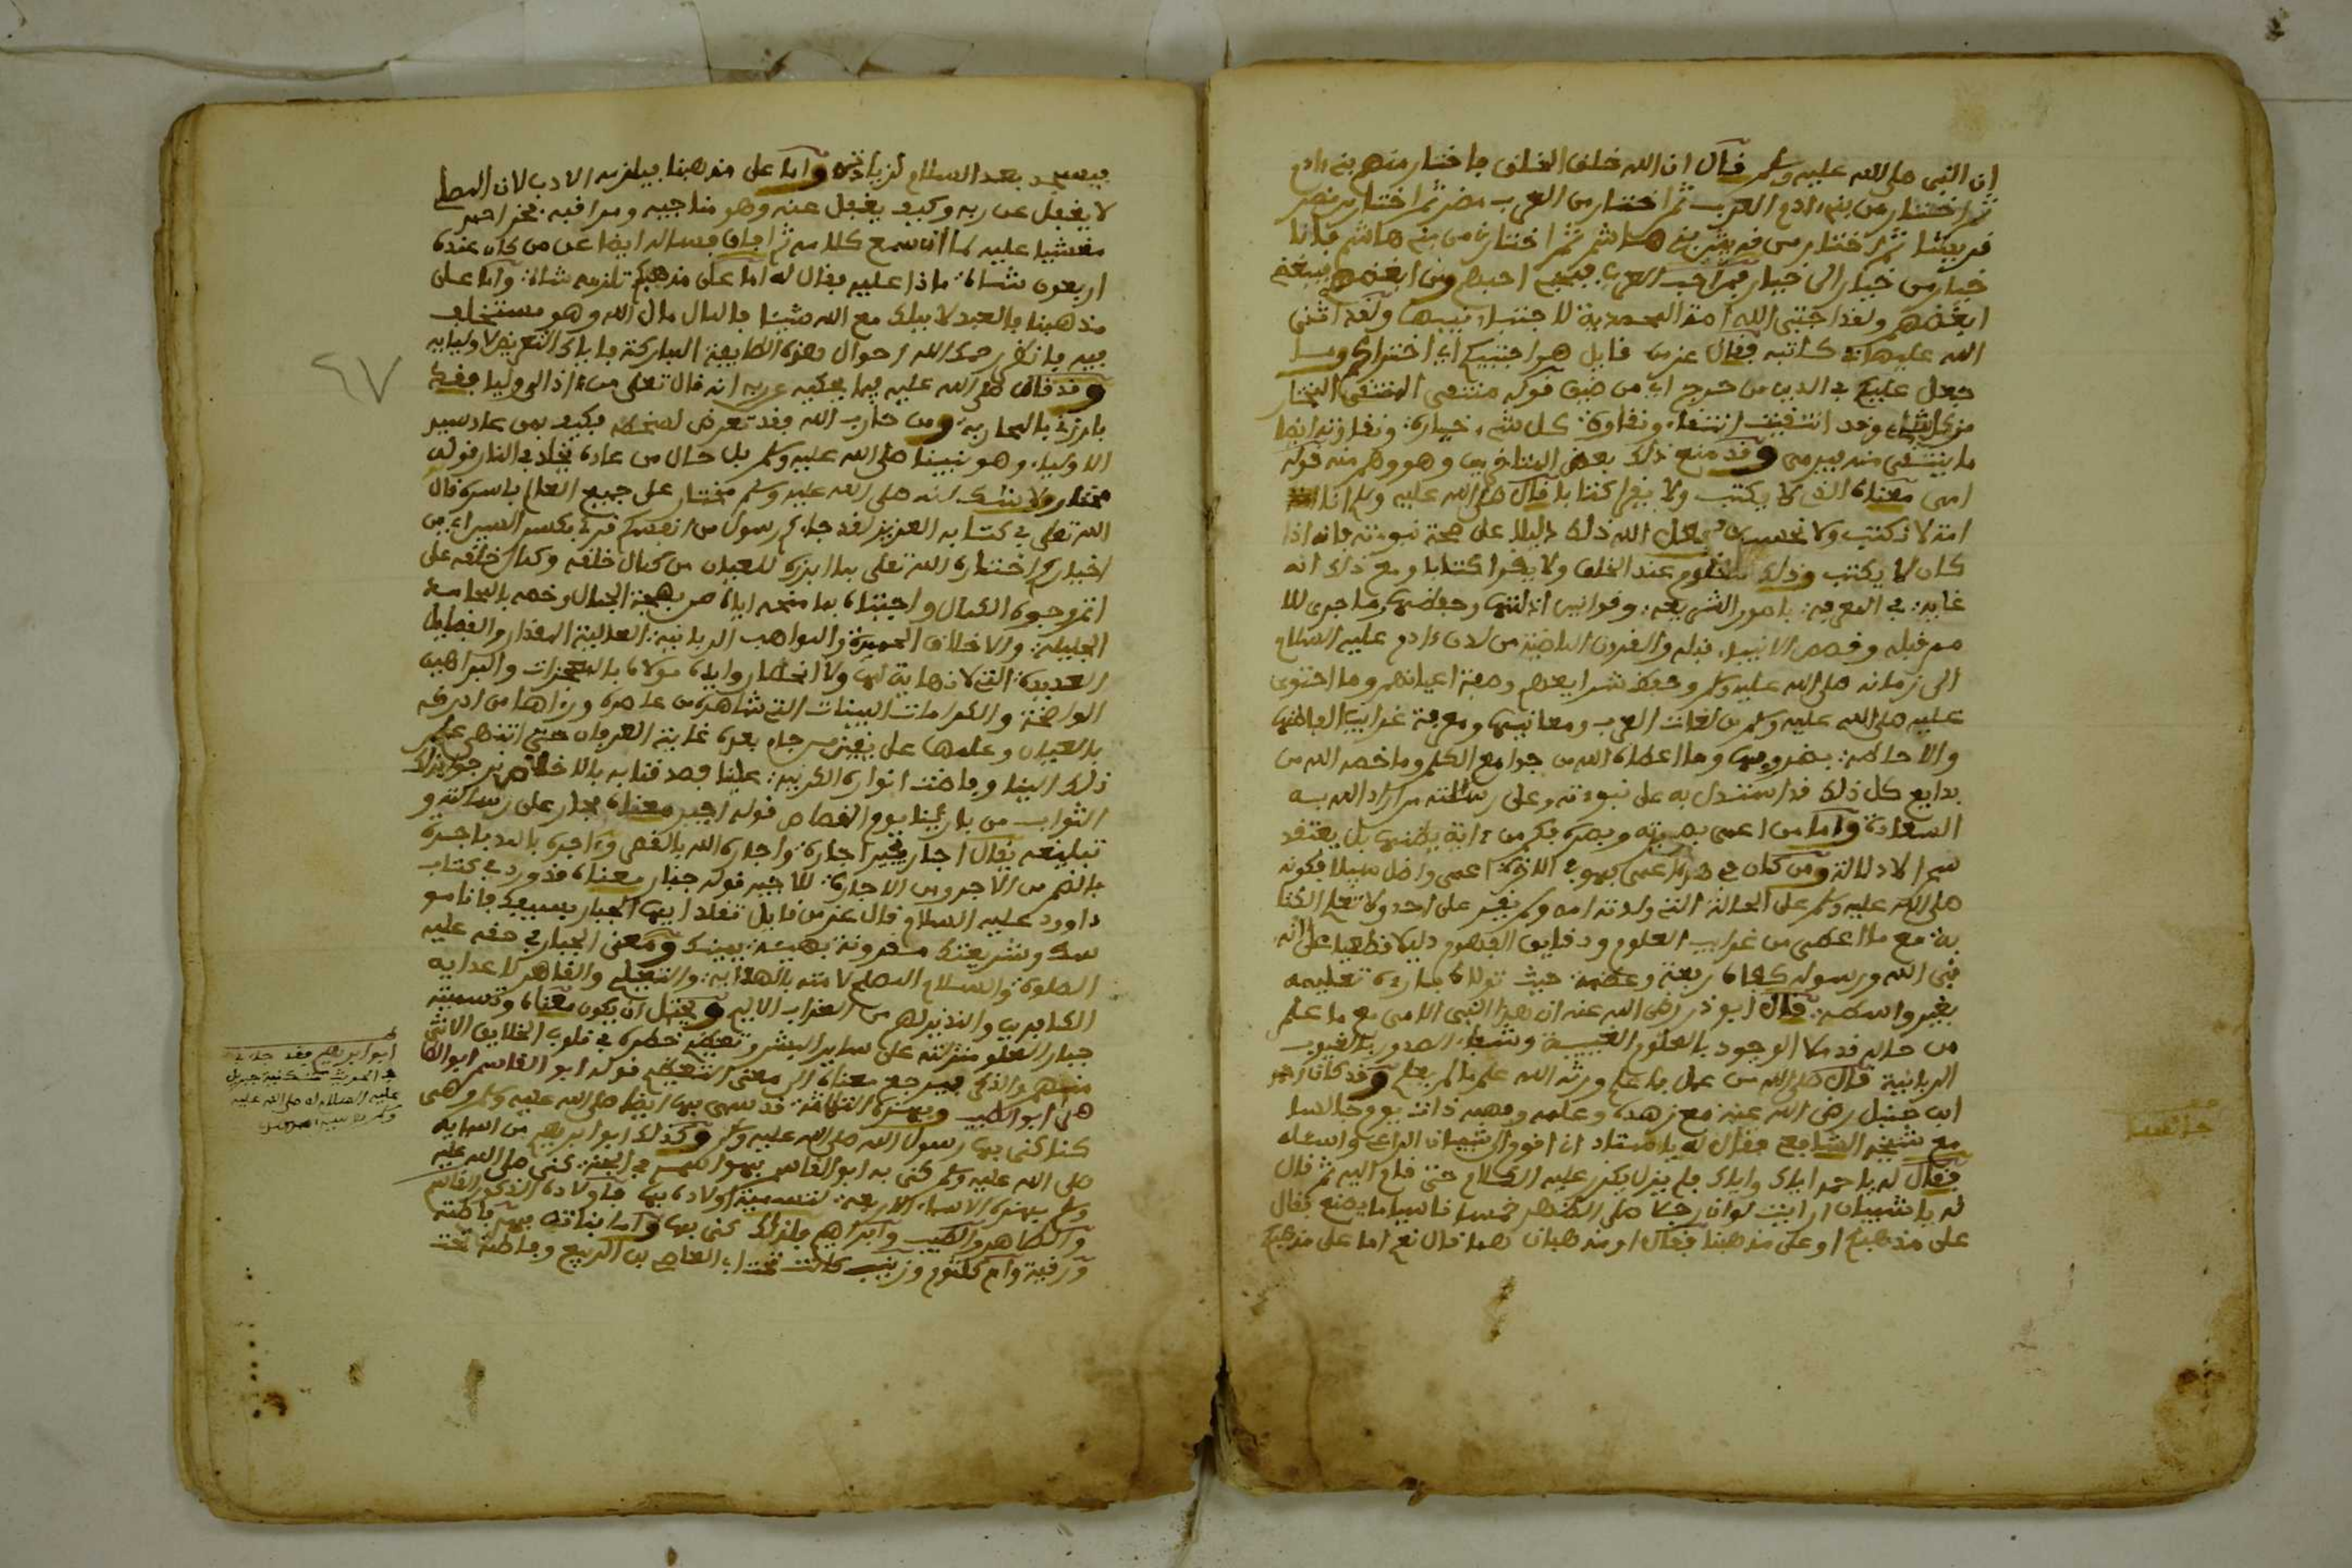 ان النبي صلى الله عليه وسلم قال ان الله خلف الخلف فاختار منهم بني ءادم
ثم اختار من بني ءادم العرب ثم اختار من العرب مضر ثم اختار من مضر
قريشا ثم اختار من قريش بني هاشم ثم اختارني من بني هاشم فانا
خيار من خيار الى خيار فمن احب العرب فبحبي احبهم ومن ابغضهم فببغضي
ابغضهم ولقد اجتبى الله امة المحمدية لاجتباء نبيها ولقد اثنى
الله عليها في كتابه فقال عز من قايل هو اجتبيكم اي اختراكم وما
جعل عليكم في الدين من حرج اي من ضيق قوله منتقى المنتقى المختار
من كل شيء وقد انتقيت انتقاء ونقاوة كل شيء خياره ونقاوته ايضا
ما ينتقى منه فيرمى وقد منع ذلك بعض المتاخرين وهو وهم منه قوله
امي معناه الذي لا يكتب ولا يقرا كتابا قال صلى الله عليه وسلم انا
امة لا نكتب ولا نحسب فجعل الله ذلك دليلا على صحة نبوءته فانه اذا
كان لا يكتب وذلك معلوم عند الخلق ولا يقرا كتابا ومع ذلك انه
غاية في المعرفة بامور الشريعة وقوانين ادلتها وحفظها وما جرى للا
مم قبله وقصص الانبياء قبله والقرون الماضية من لدن ءادم عليه السلام
الى زمانه صلى الله عليه وسلم وحفظ شرايعهم وصفة اعيانهم وما احتوى
عليه صلى الله عليه وسلم من لغات العرب ومعانيها ومعرفة غرايب الفاظها
والاحاطة بضروبها وما اعطاه الله من جوامع الكلم وما خصه الله من
بدايع كل ذلك قد استدل به على نبوءته وعلى رسالته من اراد الله به
السعادة واما من اعمى بصيرته وبصره فكم من ءاية يظنها بل يعتقد
سحرا لا دلالة ومن كان في هذه اعمى فهو في الاخرة اعمى واضل سبيلا فكونه
صلى الله عليه وسلم على الحالة التي ولدته امه ولم يقر على احد ولا تعلم الكتا
بة مع ما اعطى من غرايب العلوم ودقايق الفهوم دليلا قطعيا على انه
نبي الله ورسوله كفاه رفعة وعظمة حيث تولاه باريه تعليمه
بغير واسطة قال ابو ذر رضي الله عنه ان هذا النبي الامي مع ما علم
من حاله قد ملا الوجود بالعلوم الغيبية وشفاء الصدور بالغيوب
الربانية قال صلى الله من عمل بما علم ورثه الله علم ما لم يعلم وقد كان احمد
ابن حنبل رضي الله عنه مع زهده وعلمه وفهمه ذات يوم جالسا
مع شيخه الشافعي فقال له يا استاذ ان اقوم الى شيبان الراعي واسئله
فقال له يا احمد اياك واياك فلم يزل يكرر عليه الكلام حتى قام اليه ثم قال
له يا شيبان ارايت لو ان رجلا صلى الظهر خمسا ناسيا ما يصنع فقال
على مذهبكم او على مذهبنا فقال او مذهبان هما قال نعم اما على مذهبكم
جالسا
فيسجد بعد السلام لزيادته واما على مذهبنا فيلزمه الادب لان المصلي
لا يغفل عن ربه وكيف يغفل عنه وهو مناجيه ومراقبه فخر احمد
مغشيا عليه لما ان سمع كلامه ثم افاق فساله ايضا عن من كان عنده
اربعون شاة ماذا عليه فقال له اما على مذهبكم تلزمه شاة واما على
مذهبنا فالعبد لا يملك مع الله شيئا فالمال مال الله وهو مستخلف
فيه فانظر رحمك الله احوال هذه الطايفة المباركة فاياك التعرض لاوليايه
وقد قال صلى الله عليه فيما يحكيه عن ربه انه قال تعالى من ءاذى لي وليا فقد
بارزني بالمحاربة ومن حارب الله فقد تعرض لسخطه فكيف بمن عاد سيد
الاولياء وهو نبينا صلى الله عليه وسلم بل حال من عاداه يخلد في النار قوله
مختار ولا شك انه صلى الله عليه وسلم مختار على جميع العالم باسره قال
الله تعلى في كتابه العزيز لقد جاءكم رسول من انفسكم قرئ بكسر السين اي من
اخياركم اختاره الله تعلى بما ابرزه للعيان من كمال خلقه وكمل خلقه على
اتم وجوه الكمال واجتباه بما منحه اياه من بهجة الجمال وخصه بالمحاسن
الجليلة والاخلاق الحميدة والمواهب الربانية العالية المقدار والفضايل
العديدة التي لا نهاية لها ولا انحصار وايده مولاه بالمعجزات والبراهين
الواضحة والكرامات البينات التي شاهدها من عاصره وراها من ادركه
بالعيان وعلمها على يقين من جاء بعده غاية العرفان حتى انتهى علم
ذلك الينا وفاضت انواره الكريمة علينا فصدقنا به بالاخلاص نرجو بذلك
الثواب من بارئنا يوم القصاص قوله اجير معناه مجار على رسالته و
تبليغه يقال اجار يجير اجارة واجاره الله بالقصر وءاجره بالمد باجره
بالضم من الاجر ومن الاجارة للاجير قوله جبار معناه قد ورد في كتاب
داوود عليه السلام قال عز من قايل تقلد ايها الجبار بسيفك فان نامو
سك وشريعتك مقرونة بهيبة يمينك ومعنى الجبار في حقه عليه
الصلوة والسلام المصلح لامته بالهداية والتعليم والقاهر لاعدايه
الكافرين والنذير لهم من العذاب الاليم ويحتمل ان يكون معناه وتسميته
جبارا لعلو منزلته على ساير البشر وتعظيم خطره في قلوب الخلايق الانثى
منهم والذكر فيرجع معناه الى معنى التعظيم قوله ابو القاسم ابو الطا
هر ابو الطيب وبهذه الثلاثة قد سمي بها ايضا صلى الله عليه وسلم وهي
كنا كني بها رسول الله صلى الله عليه وسلم وكذلك ابو ابراهيم من اسمايه
صلى الله عليه وسلم كني به ابو القاسم في الجنة كني صلى الله عليه
وسلم بهذه الاسماء الاربعة لتسمية اولاده بها فاولاده الذكور القاسم
والطاهر والطيب وابراهيم فلذلك كني بها واما بناته فهم فاطمة
ورقية وام كلثوم وزينب كانت تحت ابي العاص بن الربيع وفاطمة تحت
٤٧
ابو ابراهيم فقد جاء
في الحديث تكنية جبريل
عليه السلام له صلى الله عليه